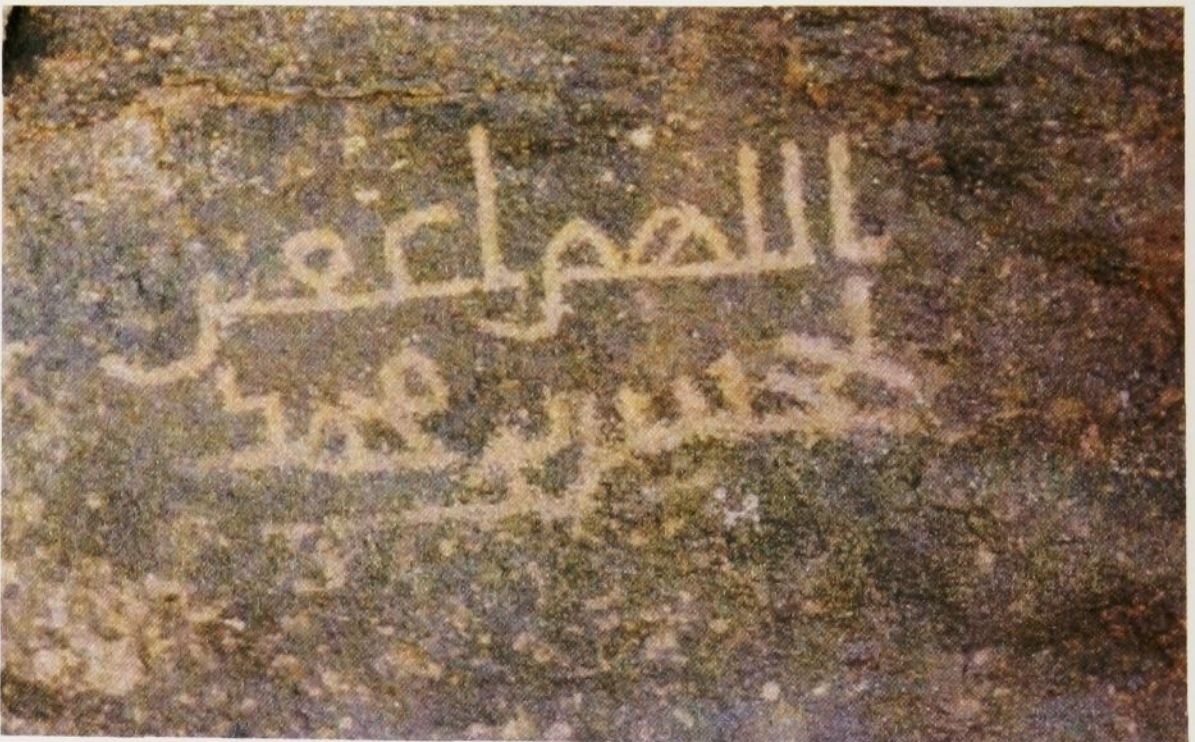 اللهم اغفر
لحسن بن محمد